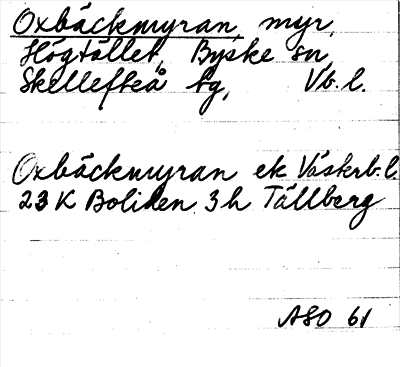 Oxbäckmyran, myr,
Högfället, Byske sn,
Skellefteå tg, Vb. l.
Oxbäckmyran ek Västerb. l.
23 K Boliden 3 h Tällberg
ASO 61